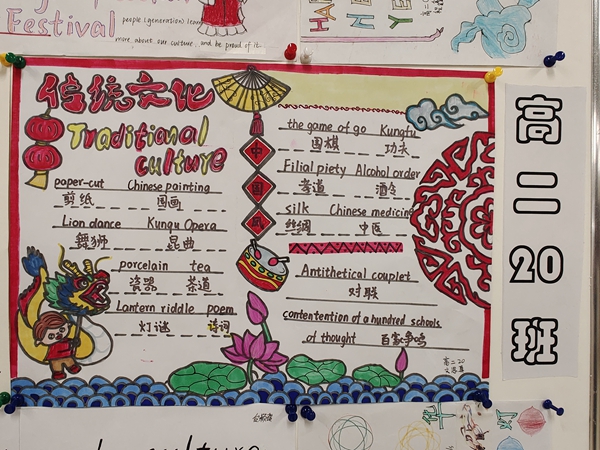 Festival
people (generation) learn
more about our culture, and be proud of it.
传统文化
Traditional
culture
paper-cut Chinese painting
剪纸 国画
Lion dance Kunqu Opera
舞狮 昆曲
porcelain tea
瓷器 茶道
Lantern riddle poem
灯谜 诗词
中
国
风
the game of go Kungfu
围棋 功夫
Filial piety Alcohol order
孝道 酒令
silk Chinese medicine
丝绸 中医
Antithetical couplet
对联
contentention of a hundred schools
of thought 百家争鸣
高二20
高
二
20
班